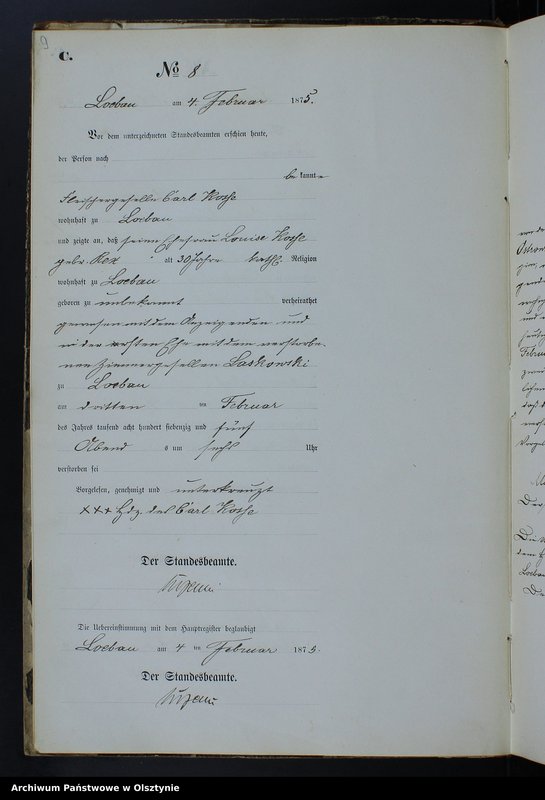 9
C.
No 8
Loebau am 4. Februar 1875.
Vor dem unterzeichneten Standesbeamten erschien heute,
der Person nach
bekannte
Fleischergeselle Carl
wohnhaft zu Loebau
und zeigte an, daß seine Ehefrau Louise
gebr. alt 30 Jahre kathl. Religion
wohnhaft zu Loebau
geboren zu unbekannt verheirathet
gewesen mit dem Anzeigenden und
in der ersten Ehe mit dem verstorbe-
nen Zimmergesellen Laskowski
zu Loebau
am dritten ten Februar
des Jahres tausend acht hundert siebenzig und fünf
Abend s um sechs Uhr
verstorben sei
Vorgelesen, genehmigt und unterkreuzt
+++ Hdz. des Carl
Der Standesbeamte.
Die Uebereinstimmung mit dem Hauptregister beglaubigt
Loebau am 4 ten Februar 1875.
Der Standesbeamte.
Archiwum Państwowe w Olsztynie